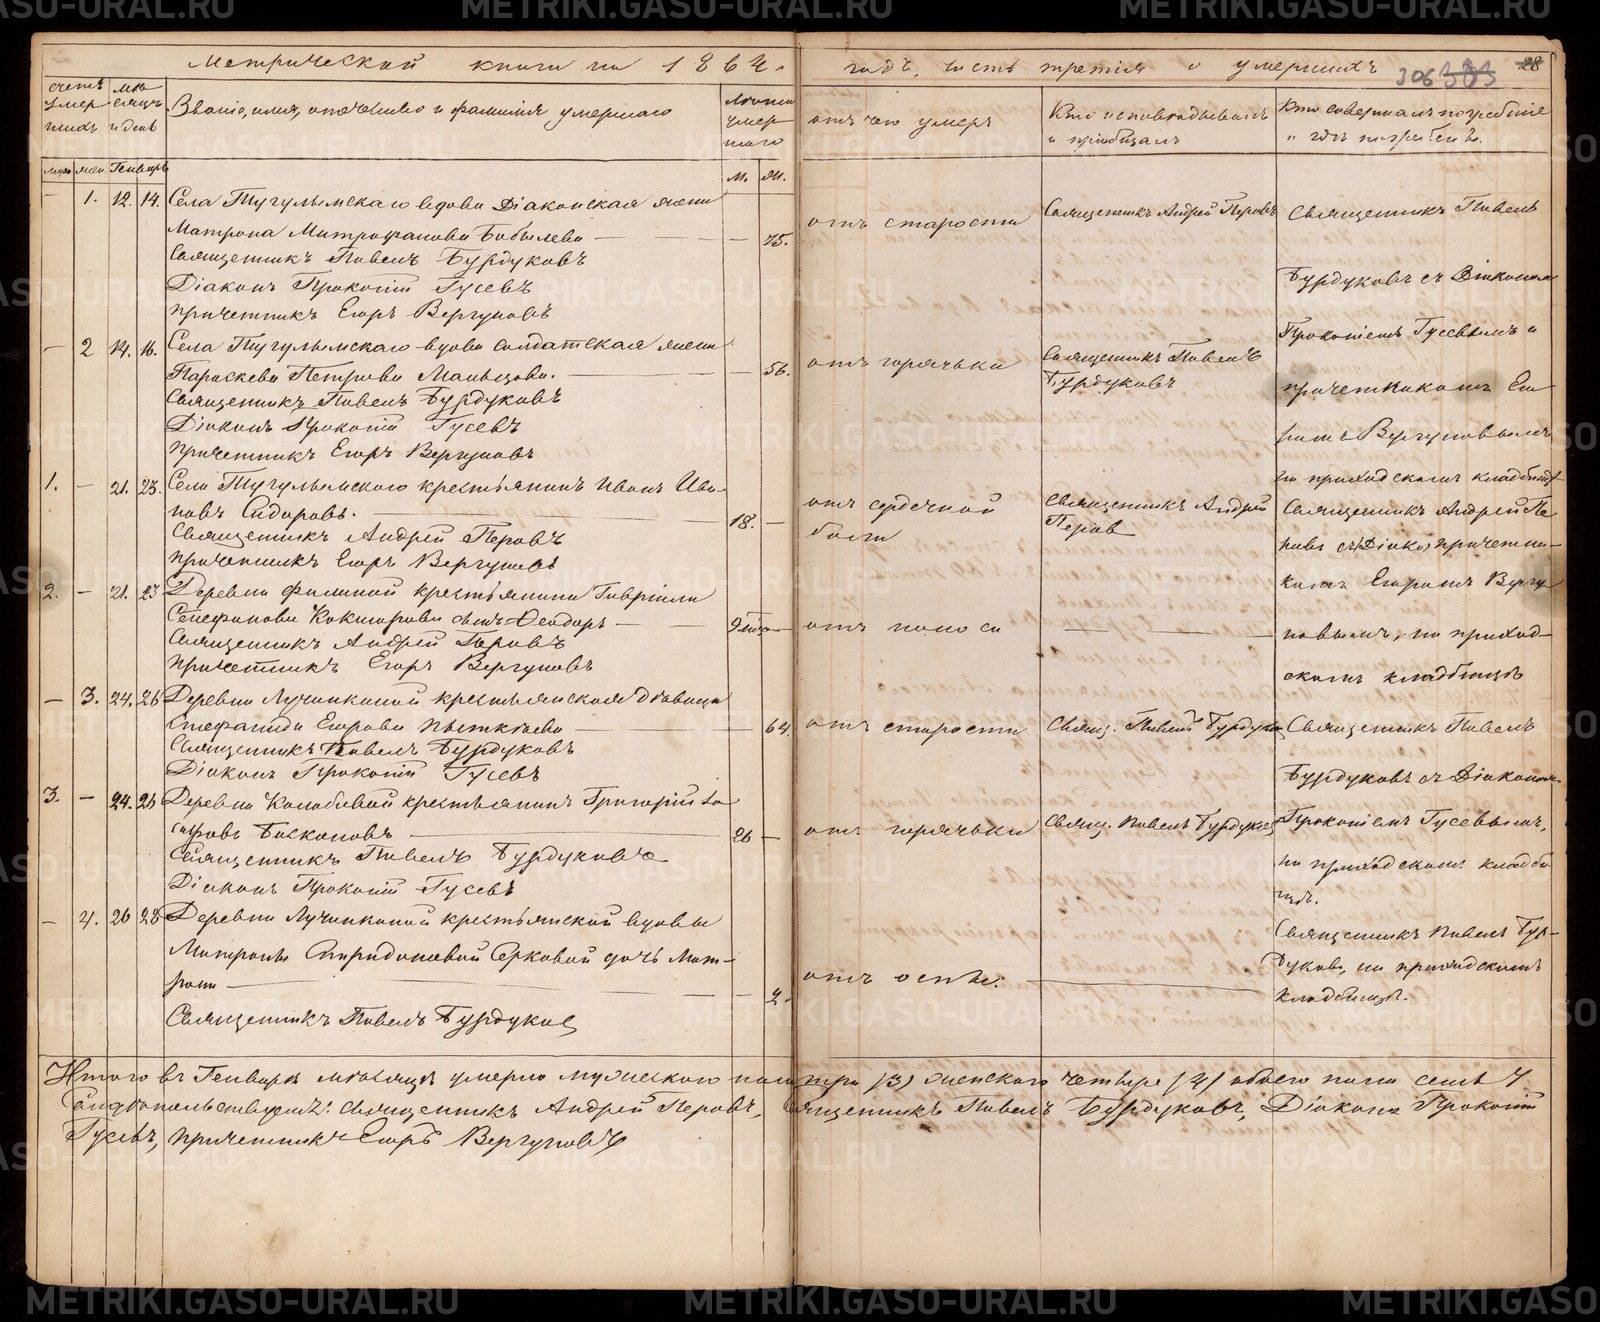 Метрической книги на 1864.
годъ, часть третія о умершихъ
306
28
счетъ умер шихъ
мѣ сяцъ и день
Званіе, имя, отечество и фамилія умершаго
Лѣта умер шаго
отъ чего умеръ
Кто исповѣдывалъ и пріобщалъ
Кто совершалъ погребеніе и гдѣ погребенъ.
муж. жен. Генварь
м. ж.
— 1. 12. 14. Села Тугулымскаго вдова Діаконская жена
Матрона Митрофанова Бабылева — — 75.
Священникъ Павелъ Бурдуковъ
Діаконъ Прокопій Гусевъ
Причетникъ Егоръ Вергуновъ
отъ старости
Священникъ Андрей Перовъ
Священникъ Павелъ
Бурдуковъ съ Діакономъ
Прокопіемъ Гусевымъ и
причетникомъ Его
ромъ Вергуновымъ
на приходскомъ кладбищѣ
— 2 14. 16. Села Тугулымскаго вдова солдатская жена
Параскева Петрова Мальцова. — — 56.
Священникъ Павелъ Бурдуковъ
Діаконъ Прокопій Гусевъ
Причетникъ Егоръ Вергуновъ
отъ горячьки
Священникъ Павелъ
Бурдуковъ
1. — 21. 23. Села Тугулымского крестьянинъ Иванъ Ива-
новъ Сидоровъ. 18. —
Священникъ Андрей Перовъ
Причетникъ Егоръ Вергуновъ
отъ сердечной
боли
Священникъ Андрей
Перов
Священникъ Андрей Пе
ровъ съ Діако, причетни-
комъ Егоромъ Вергу
новымъ, на приход-
скомъ кладбищѣ
2. — 21. 23 Деревни Филиной крестьянина Гавріила
Стефанова Кокшарова сынъ Ѳеодоръ —
Священникъ Андрей Перовъ
Причетникъ Егоръ Вергуновъ
отъ поноса
— 3. 24. 26 Деревни Лучинкиной крестьянская дѣвица
Стефанида Егорова — 64.
Священникъ Павелъ Бурдуковъ
Діаконъ Прокопій Гусевъ
отъ старости
Свящ. Павелъ Бурдуко
Священникъ Павелъ
Бурдуковъ съ Діакономъ
Прокопіемъ Гусевымъ,
на приходскомъ кладби
щѣ.
3. — 24. 26 Деревни Колобовой крестьянинъ Григорій Іо
сифовъ — 26 —
Священникъ Павелъ Бурдуковъ
Діаконъ Прокопій Гусевъ
отъ горячьки
Свящ. Павелъ Бурдуков
— 4. 26 28 Деревни Лучинкиной крестьянской вдовы
Матроны Спиридоновой Серковой дочь Мат-
рона — — 2.
Священникъ Павелъ Бурдуков
отъ оспы.
Священникъ Павелъ Бур-
дуковъ, на приходскомъ
кладбищѣ.
Итого въ Генварѣ мѣсяцѣ умерло мужескаго пола три /3/ женского четыре /4/ обоего пола семь 7
Свидѣтельствуемъ: Священникъ Андрей Перовъ, Священникъ Павелъ Бурдуковъ, Діаконъ Прокопій
Гусевъ, Причетникъ Егоръ Вергуновъ
METRIKI.GASO-URAL.RU